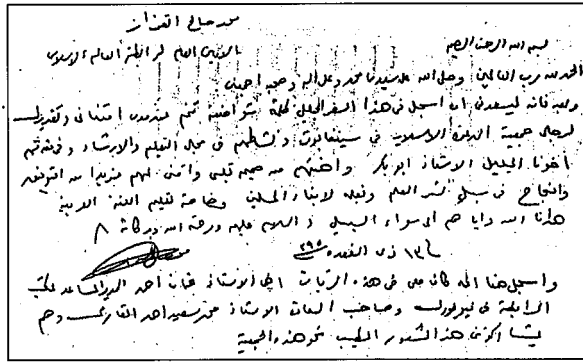 محمد صالح القزاز
الامين العام لرابطة العالم الاسلامي
بسم الله الرحمن الرحيم
الحمد لله رب العالمين وصلى الله على سيدنا محمد وعلى آله وصحبه اجمعين
وبعد فانه ليسعدني ان اسجل في هذا السفر الجليل كلمة متواضعة تنم عن امتناني وتقديري
لرجال جمعية الدعوة الاسلامية في سينغافورة ونشاطهم في مجال التعليم والارشاد وفي مقدمتهم
أخونا الجليل الاستاذ ابو بكر من صميم قلبي واتمنى لهم مزيدا من التوفيق
والنجاح في سبيل نشر العلم لابناء المسلمين وخاصة تعليم اللغة العربية
هدانا الله واياهم الى سواء السبيل والسلام عليكم ورحمة الله وبركاته
١٣ ذي القعدة ٣٩٥
واسجل هنا انه كان معي في هذه الزيارة احمد مكتب
الرابطة في نيويورك وصاحب الاستاذ محمد سعيد احمد وهم
هذا الشعور الطيب نحو هذه الجمعية